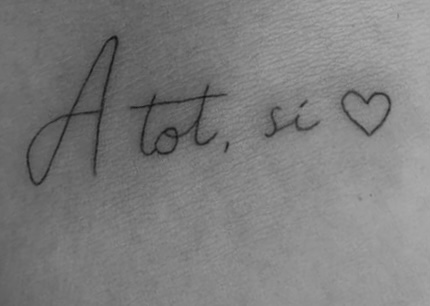 A tot, sí ♡